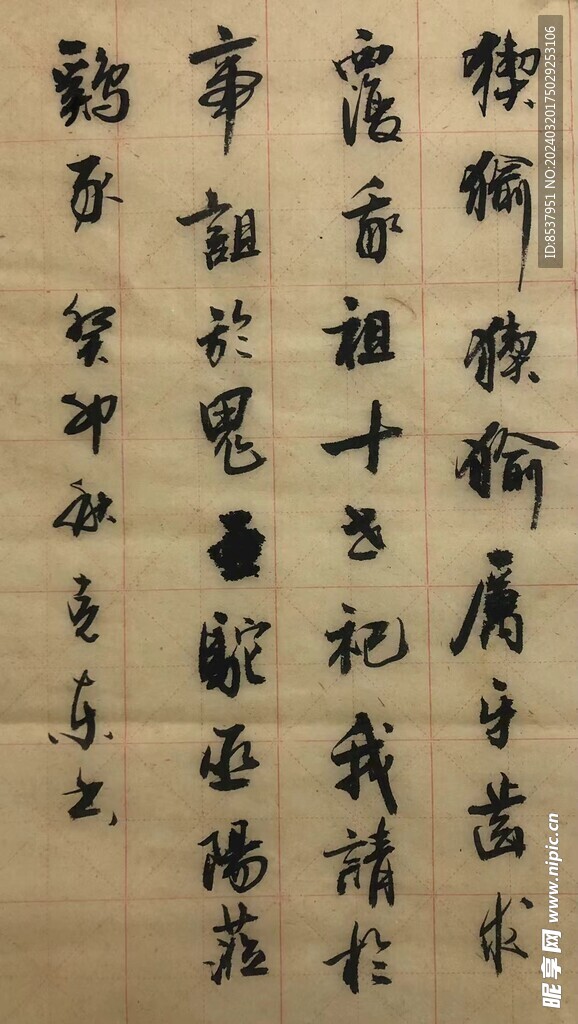 猰貐猰貐厲牙齒求
覆我祖十世祀我請於
帝詛於鬼亞駝巫陽蒞
雞豕癸卯秋克东书
ID:8537951 NO:20240320175029253106
昵享网 www.nipic.cn